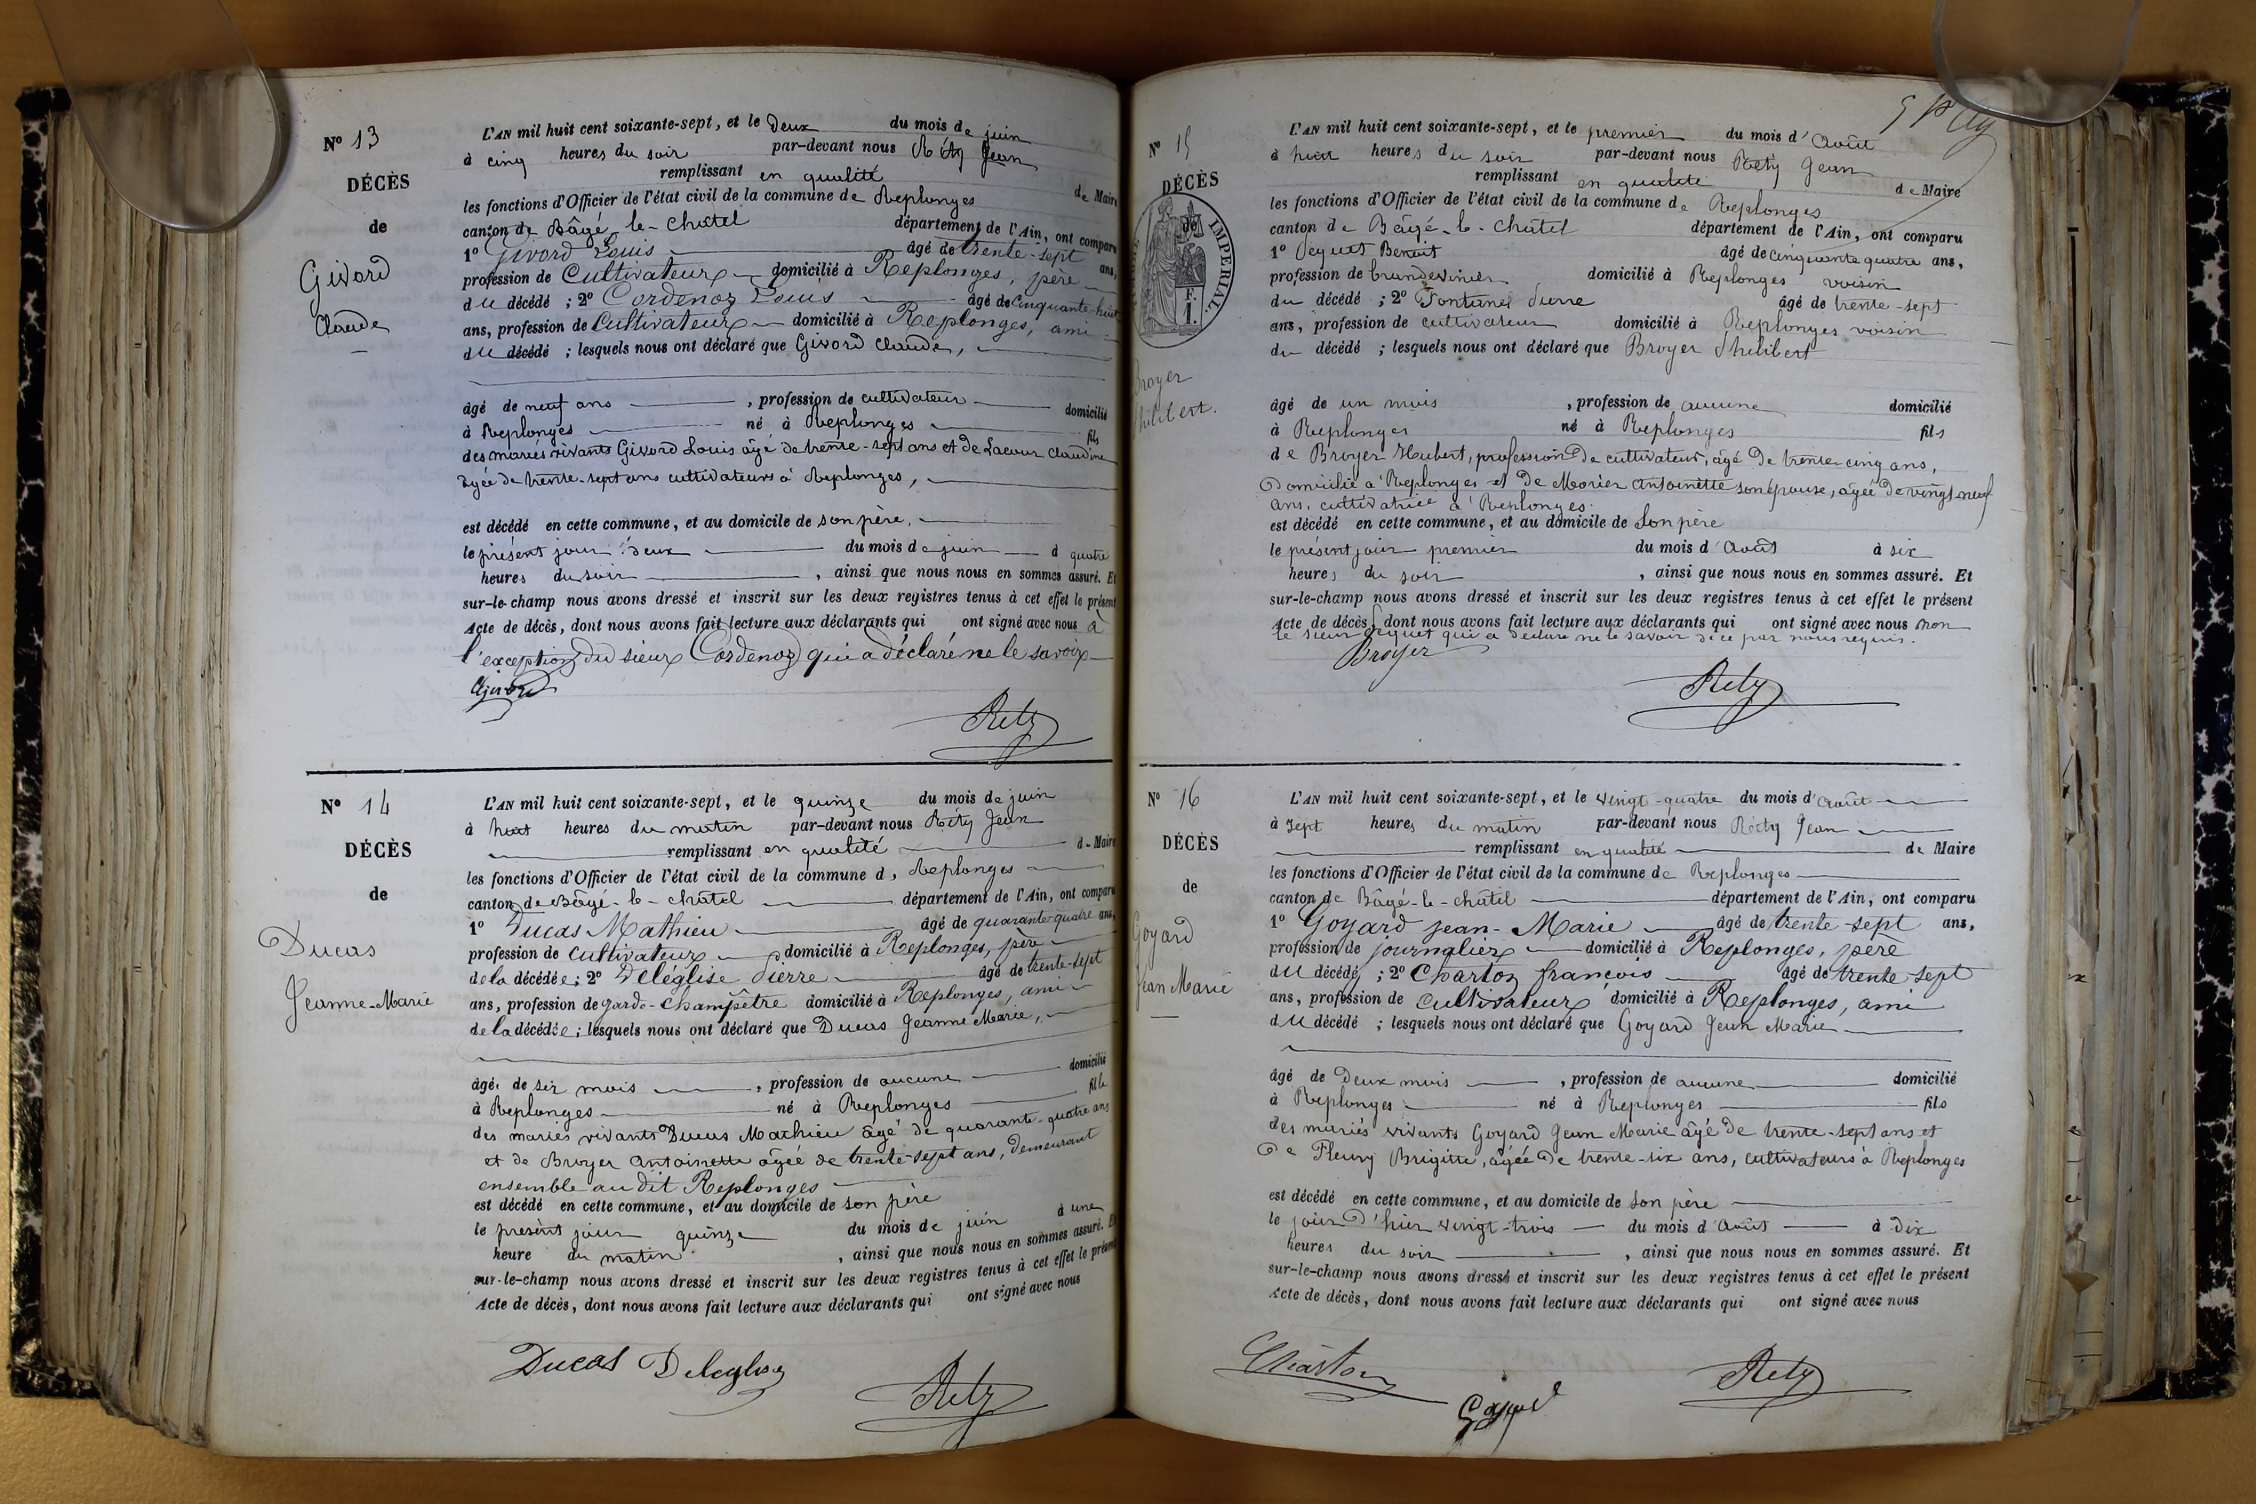 N° 13
DÉCÈS
de
Givord
Claude
L'AN mil huit cent soixante-sept, et le deux du mois de juin
à cinq heures du soir par-devant nous Réty Jean
remplissant en qualité de Maire
les fonctions d'Officier de l'état civil de la commune de Replonges
canton de Bâgé-le-Châtel département de l'Ain, ont comparu
1° Givord Louis âgé de trente-sept ans,
profession de Cultivateur domicilié à Replonges, père
du décédé ; 2° Cordenoz Louis âgé de cinquante-huit
ans, profession de Cultivateur domicilié à Replonges, ami
du décédé ; lesquels nous ont déclaré que Givord Claude,
âgé de neuf ans , profession de cultivateur domicilié
à Replonges né à Replonges fils
des mariés vivants Givord Louis âgé de trente-sept ans et de Lacour Claudine
âgée de trente-sept ans cultivateurs à Replonges,
est décédé en cette commune, et au domicile de son père,
le présent jour deux du mois de juin à quatre
heures du soir , ainsi que nous nous en sommes assuré. Et
sur-le-champ nous avons dressé et inscrit sur les deux registres tenus à cet effet le présent
Acte de décès, dont nous avons fait lecture aux déclarants qui ont signé avec nous à
l'exception du sieur Cordenoz qui a déclaré ne le savoir
Givord
Rety
N° 14
DÉCÈS
de
Ducas
Jeanne-Marie
L'AN mil huit cent soixante-sept, et le quinze du mois de juin
à huit heures du matin par-devant nous Réty Jean
remplissant en qualité de Maire
les fonctions d'Officier de l'état civil de la commune de Replonges
canton de Bâgé-le-châtel département de l'Ain, ont comparu
1° Ducas Mathieu âgé de quarante-quatre ans,
profession de Cultivateur domicilié à Replonges, père
de la décédée ; 2° Deléglise Pierre âgé de trente-sept
ans, profession de garde-champêtre domicilié à Replonges, ami
de la décédée ; lesquels nous ont déclaré que Ducas Jeanne Marie,
âgé de six mois , profession de aucune domicilié
à Replonges né à Replonges fille
des mariés vivants Ducas Mathieu âgé de quarante-quatre ans
et de Broyer Antoinette âgée de trente-sept ans, demeurant
ensemble au dit Replonges
est décédé en cette commune, et au domicile de son père
le présent jour quinze du mois de juin à une
heure du matin , ainsi que nous nous en sommes assuré. Et
sur-le-champ nous avons dressé et inscrit sur les deux registres tenus à cet effet le présent
Acte de décès, dont nous avons fait lecture aux déclarants qui ont signé avec nous
Ducas Deleglise
Rety
N° 15
DÉCÈS
de
IMPERIAL
F.
1.
Broyer
Philibert.
L'AN mil huit cent soixante-sept, et le premier du mois d'Août
à huit heures du soir par-devant nous Réty Jean
remplissant en qualité de Maire
les fonctions d'Officier de l'état civil de la commune de Replonges
canton de Bâgé-le-Châtel département de l'Ain, ont comparu
1° Benoit âgé de cinquante quatre ans,
profession de domicilié à Replonges voisin
du décédé ; 2° Pierre âgé de trente-sept
ans, profession de cultivateur domicilié à Replonges voisin
du décédé ; lesquels nous ont déclaré que Broyer Philibert
âgé de un mois , profession de aucune domicilié
à Replonges né à Replonges fils
de Broyer Hubert, profession de cultivateur, âgé de trente-cinq ans,
Domicilié à Replonges et de Morier Antoinette son épouse, âgée de vingt-neuf
ans, cultivatrice à Replonges.
est décédé en cette commune, et au domicile de son père
le présent jour premier du mois d'Août à six
heures du soir , ainsi que nous nous en sommes assuré. Et
sur-le-champ nous avons dressé et inscrit sur les deux registres tenus à cet effet le présent
Acte de décès, dont nous avons fait lecture aux déclarants qui ont signé avec nous non
le sieur qui a déclaré ne le savoir de ce par nous requis.
Broyer
Rety
N° 16
DÉCÈS
de
Goyard
Jean Marie
L'AN mil huit cent soixante-sept, et le vingt-quatre du mois d'Août
à sept heures du matin par-devant nous Réty Jean
remplissant en qualité de Maire
les fonctions d'Officier de l'état civil de la commune de Replonges
canton de Bâgé-le-châtel département de l'Ain, ont comparu
1° Goyard Jean-Marie âgé de trente-sept ans,
profession de journalier domicilié à Replonges, père
du décédé ; 2° Charton françois âgé de trente-sept
ans, profession de Cultivateur domicilié à Replonges, ami
du décédé ; lesquels nous ont déclaré que Goyard Jean Marie
âgé de Deux mois , profession de aucune domicilié
à Replonges né à Replonges fils
des mariés vivants Goyard Jean Marie âgé de trente-sept ans et
de Fleury Brigitte, âgée de trente-six ans, cultivateurs à Replonges
est décédé en cette commune, et au domicile de son père
le jour d'hier vingt-trois du mois d'Août à Dix
heures du soir , ainsi que nous nous en sommes assuré. Et
sur-le-champ nous avons dressé et inscrit sur les deux registres tenus à cet effet le présent
Acte de décès, dont nous avons fait lecture aux déclarants qui ont signé avec nous
Charton
Goyard
Rety